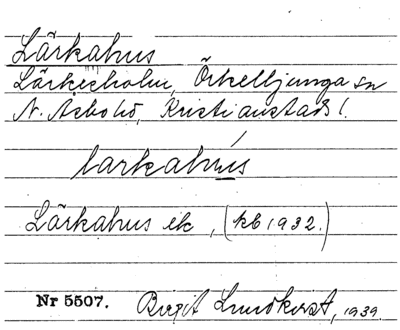 Lärkahus
Lärkesholm, Örkelljunga sn
N. Åsbo hd, Kristianstads l.
larkahus
Lärkahus ek, (kb 1932.)
Nr 5507. Birgit Lundkvist, 1939